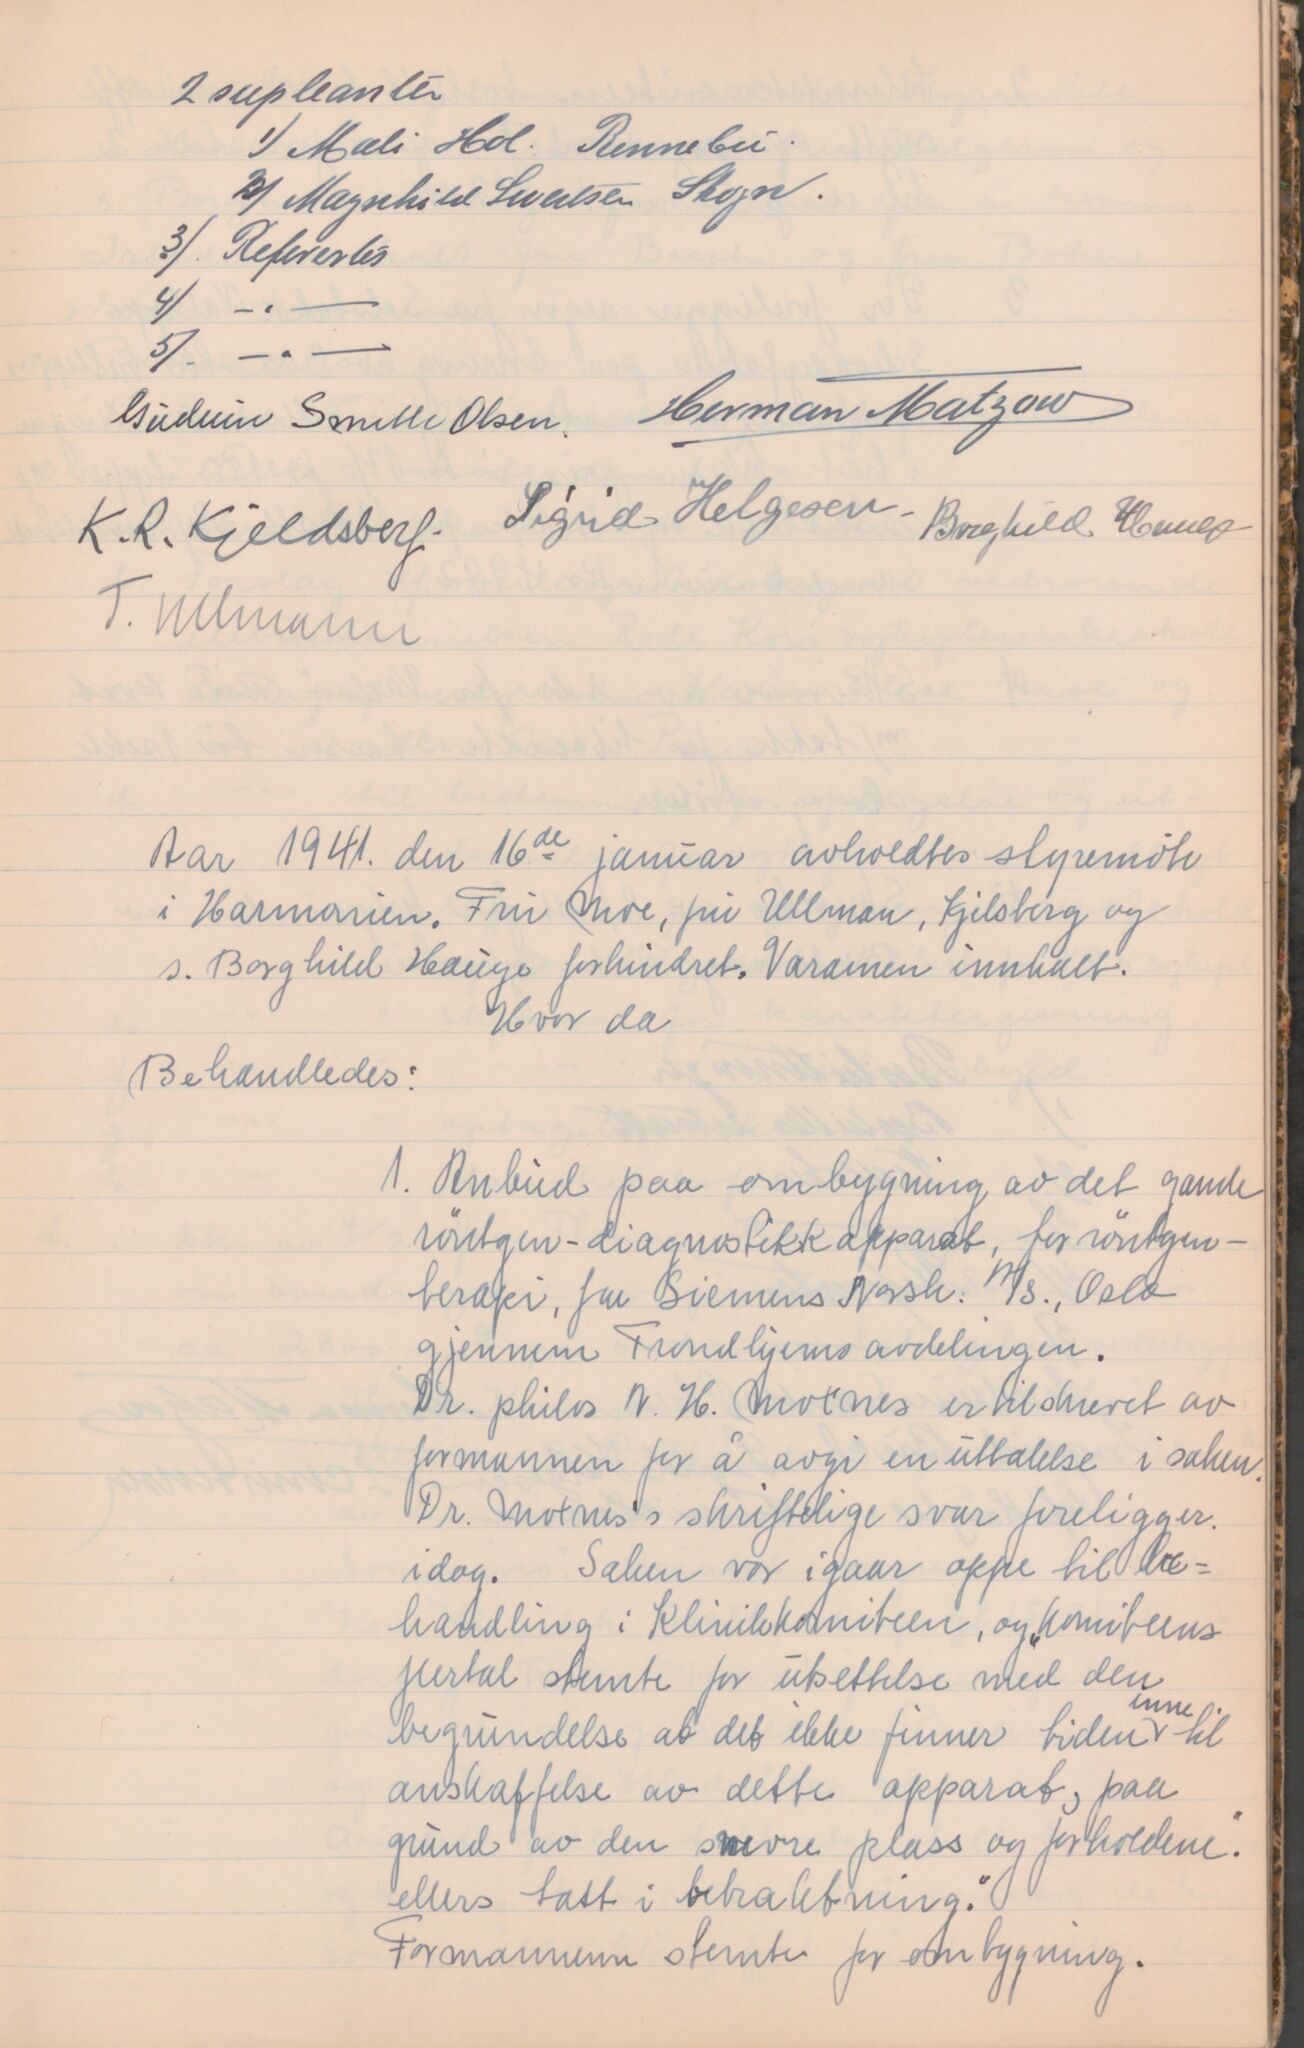 2 supleanter
1) Mali Hol. Rennebu.
2) Magnhild Sivertsen Skogn.
3). Refererles
4) -"-
5). -"-
Gudrun Smette Olsen. Herman Matzow
K. R. Kjeldsberg. Sigrid Helgesen - Borghild Hauge
T. Ullmann
Aar 1941. den 16de januar avholdtes styremöte
i Harmonien. Fru Moe, fru Ullman, Kjelsberg og
s. Borghild Hauge forhindret. Varamen innkalt.
Hvor da
Behandledes:
1. Anbud paa ombygning av det gamle
röntgen-diagnostikkapparat, for röntgen-
terapi, fra Siemens Norsk. A/S., Oslo
gjennem Trondhjems avdelingen.
Dr. philos N. H. Moxnes er tilskrevet av
formannen for å avgi en uttalelse i saken.
Dr. Moxnes's skriftelige svar foreligger.
idag. Saken var igaar oppe til be=
handling i Klinikkomiteen, og „komiteens
flertal stemte for utsettelse med den
begrundelse at det ikke finner tiden inne til
anskaffelse av dette apparat, paa
grund av den snevre plass og forholdene."
ellers tatt i betraktning."
Formannenn stemte for ombygning.